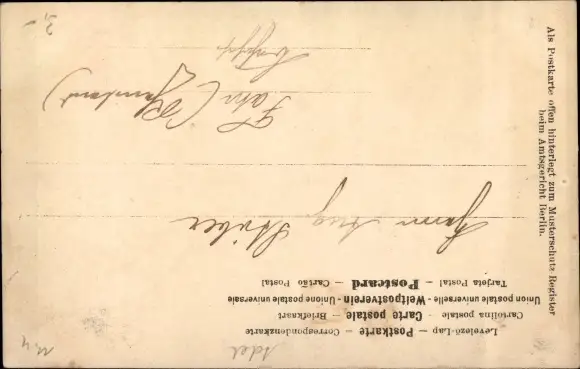 Levelező-Lap — Postkarte — Correspondenzkarte
Cartolina postale — Carte postale — Briefkaart
Union postale universelle - Weltpostverein - Unione postale universale
Tarjeta Postal — Postcard — Cartão Postal
Herrn Aug. Stüber
Fahr (Rheinland)
Als Postkarte offen hinterlegt zum Musterschutz-Register
beim Amtsgericht Berlin.
Adel
3,-